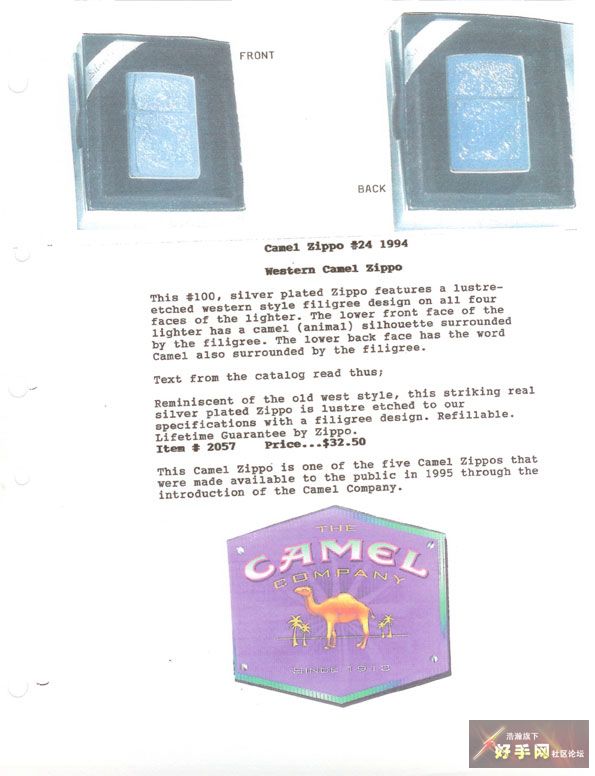 FRONT
BACK
Camel Zippo #24 1994
Western Camel Zippo
This #100, silver plated Zippo features a lustre-
etched western style filigree design on all four
faces of the lighter. The lower front face of the
lighter has a camel (animal) silhouette surrounded
by the filigree. The lower back face has the word
Camel also surrounded by the filigree.
Text from the catalog read thus;
Reminiscent of the old west style, this striking real
silver plated Zippo is lustre etched to our
specifications with a filigree design. Refillable.
Lifetime Guarantee by Zippo.
Item # 2057 Price...$32.50
This Camel Zippo is one of the five Camel Zippos that
were made available to the public in 1995 through the
introduction of the Camel Company.
THE
CAMEL
COMPANY
SINCE 1913
浩瀚旗下
好手网社区论坛